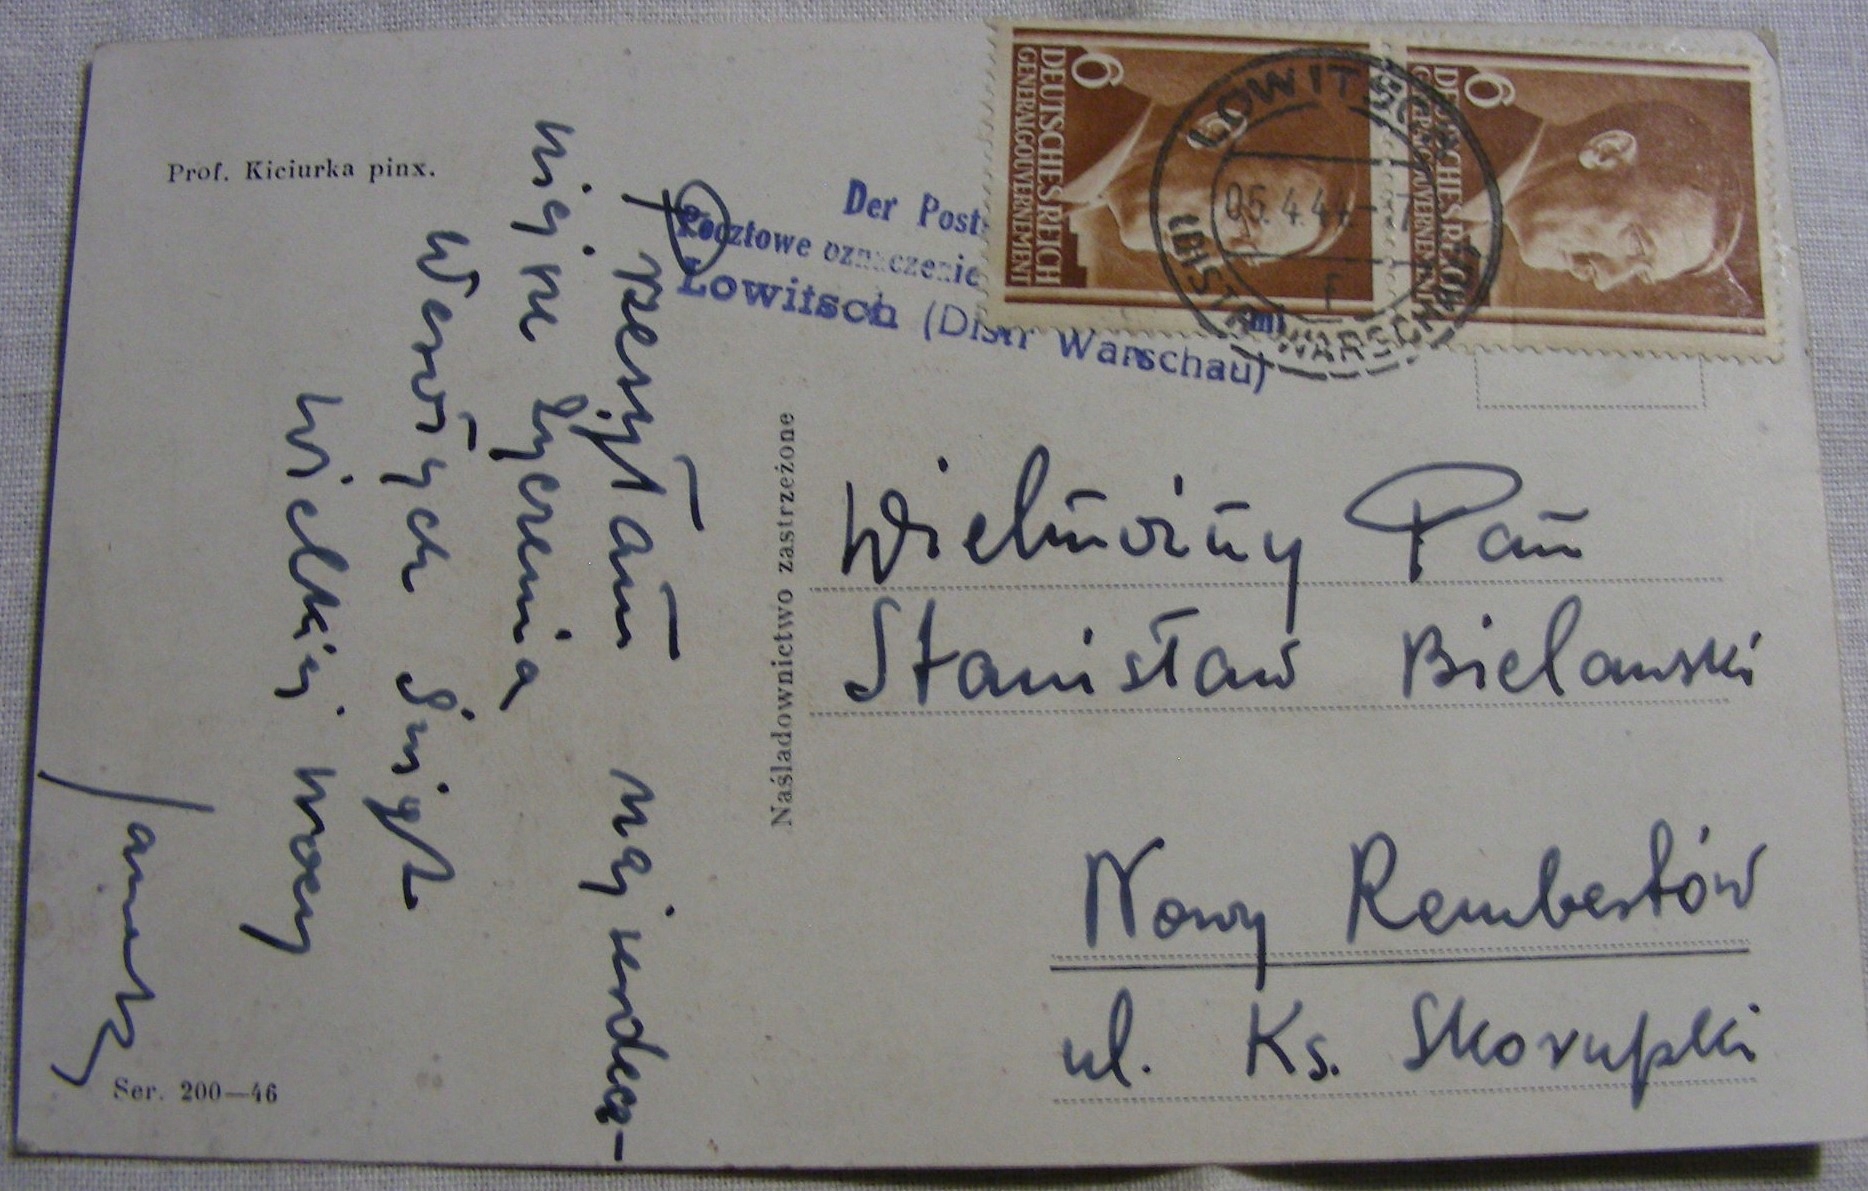 Prof. Kiciurka pinx.
Przesyłam najserdecz-
niejsze życzenia
Wesołych Świąt
Wielkiej nocy
Janek
Ser. 200—46
Naśladownictwo zastrzeżone
Der Post
Pocztowe oznaczenie
Lowitsch (Distr Warschau)
6
DEUTSCHES REICH
GENERALGOUVERNEMENT
6
DEUTSCHES REICH
GENERALGOUVERNEMENT
LOWITSCH
05.4.44
(DISTR. WARSCHAU)
Wielmożny Pan
Stanisław Bielawski
Nowy Rembertów
ul. Ks. Skorupki